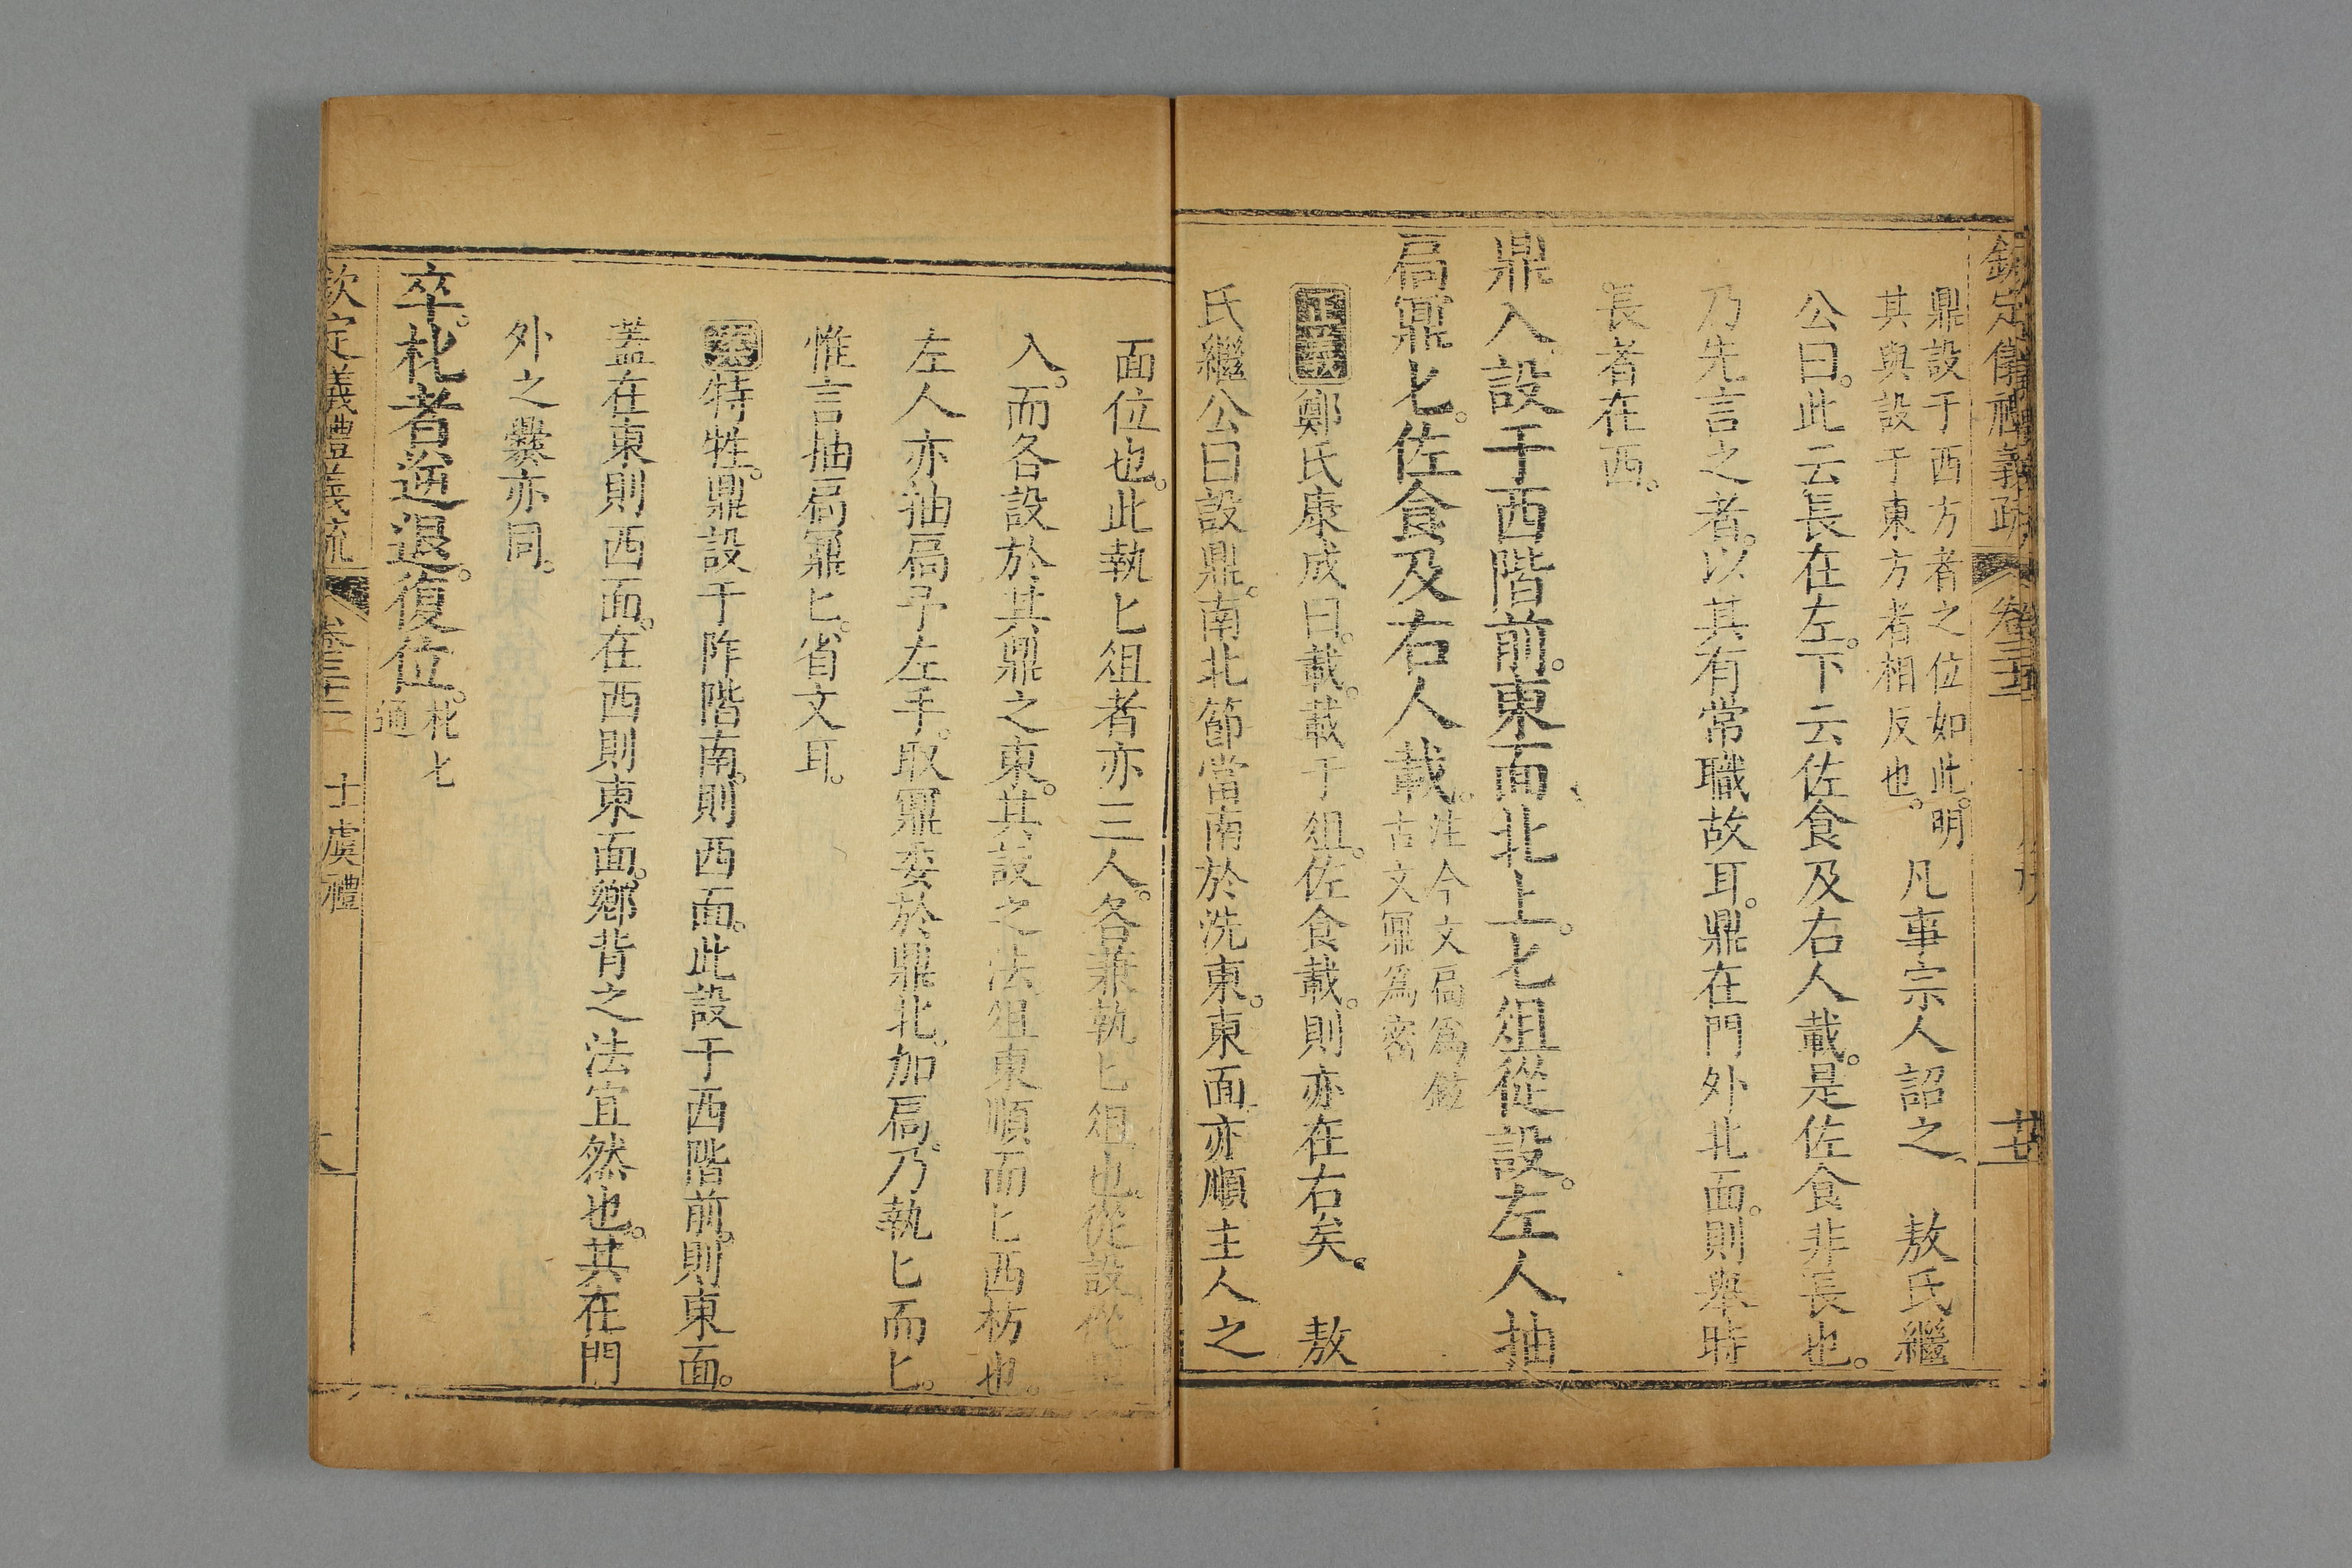 欽定儀禮義疏 卷三十三
鼎設于西方者之位如此。明
其與設于東方者相反也。
凡事宗人詔之。 敖氏繼
公曰。此云長在左。下云佐食及右人載。是佐食非長也。
乃先言之者。以其有常職故耳。鼎在門外北面。則舉時
長者在西。
鼎入設于西階前。東面北上。匕俎從設。左人抽
扃鼏匕。佐食及右人載。
注今文扃為鉉
古文鼏為密
正義鄭氏康成曰。載。載于俎。佐食載。則亦在右矣。 敖
氏繼公曰設鼎。南北節當南於洗東。東面亦順主人之
面位也。此執匕俎者亦三人。各兼執匕俎也。從設。從鼎
入。而各設於其鼎之東。其設之法俎東順而匕西枋也。
左人亦抽扃予左手。取鼏委於鼎北。加扃。乃執匕而匕。
惟言抽扃鼏匕。省文耳。
特牲。鼎設于阼階南。則西面。此設于西階前。則東面。
蓋在東則西面。在西則東面。鄉背之法宜然也。其在門
外之爨亦同。
卒。朼者逆退。復位。
朼匕
通
欽定儀禮義疏 卷三十三 士虞禮